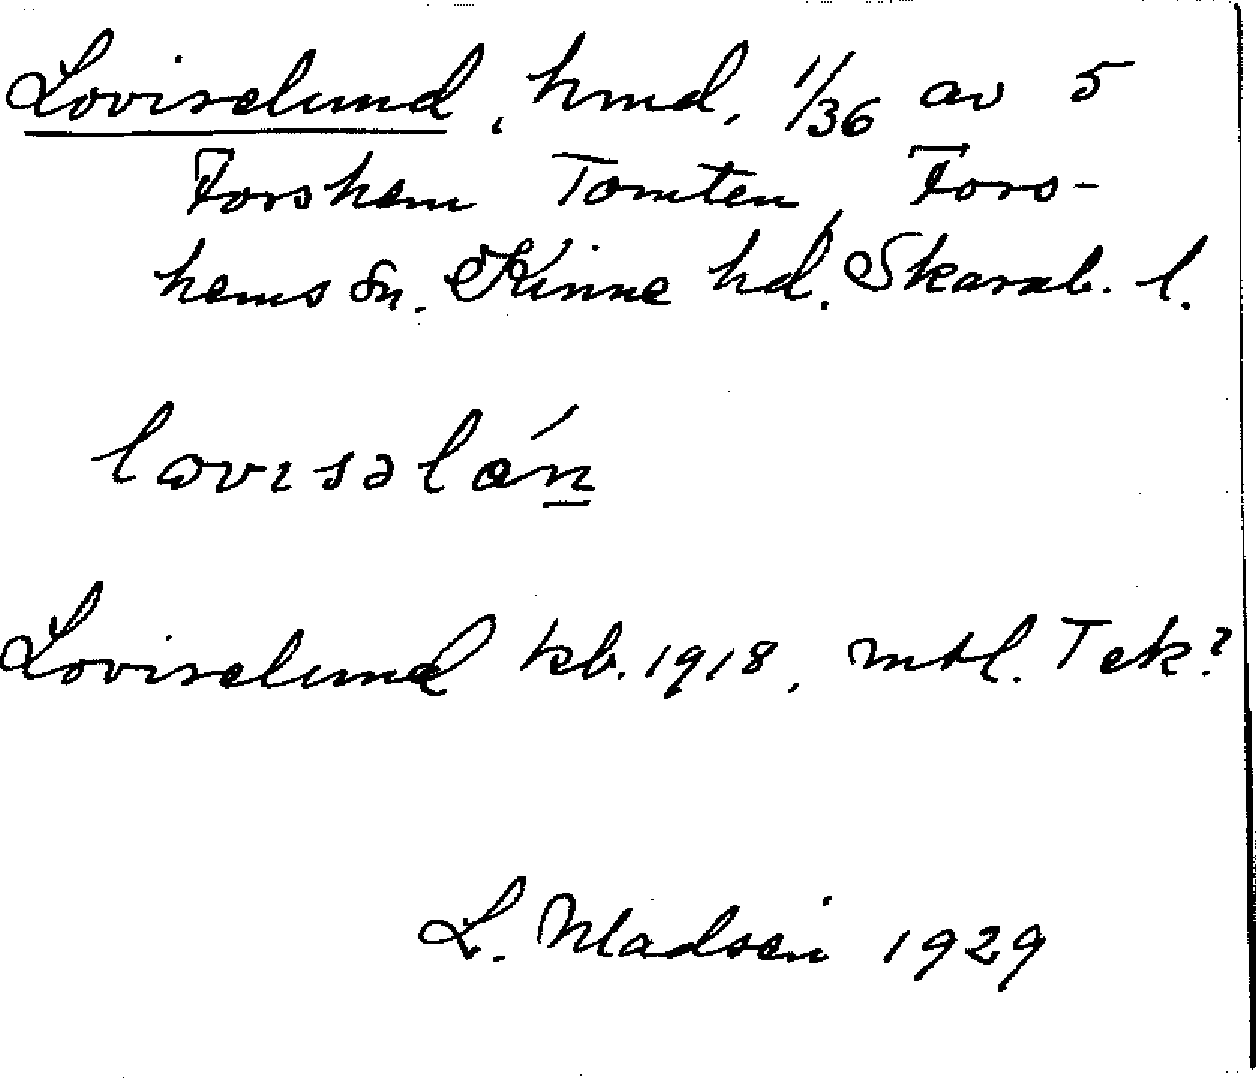 Loviselund, hmd, 1/36 av 5
Forshem Tomten, Fors-
hems sn. Kinne hd. Skarab. l.
lovɪsəlón
Loviselund kb. 1918, mtl. Tek?
L. Madsen 1929